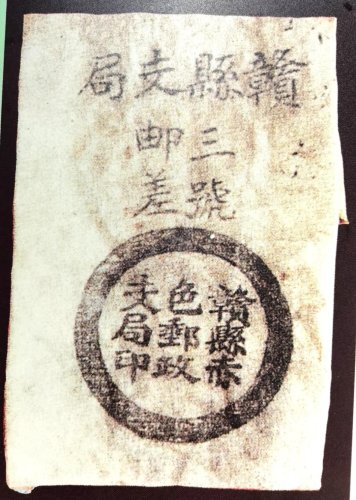 贛縣支局
三號
邮差
贛縣赤
色郵政
支局印